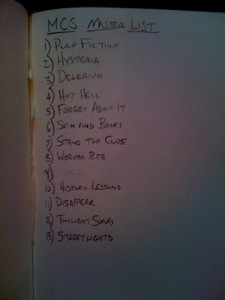 MCS MASTER LIST
1) PULP FICTION
2) HYSTERIA
3) DELERIUM
4) HOT HELL
5) FORGET ABOUT IT
6) SKIN AND BONES
7) STAND TOO CLOSE
8) WORKER BEE
9)
10) HISTORY LESSONS
11) DISAPPEAR
12) TWILIGHT SONG
13) STREETLIGHTS